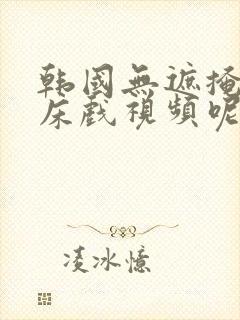 韩國無遮掩
床戲視頻呢
凌冰憶